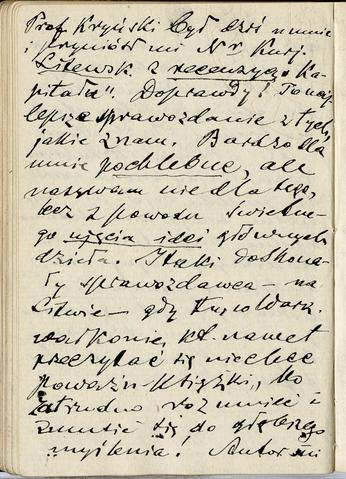 Prof. Kryński był dziś u mnie
i przyniósł mi Nr Kurj.
Litewsk. z recenzyą "Ka-
pitału". Doprawdy! To naj-
lepsze sprawozdanie z tych,
jakie znam. Bardzo dla
mnie pochlebne, ale
nazywam nie dla tego,
lecz z powodu świetne-
go ujęcia idei głównych
dzieła. I taki doskona-
ły sprawozdawca – na
Litwie – gdy tu
nawet
przeczytać się nie chce
poważn. książki, bo
zatrudno rozumieć i
zmusić się do głębszego
myślenia! Autor